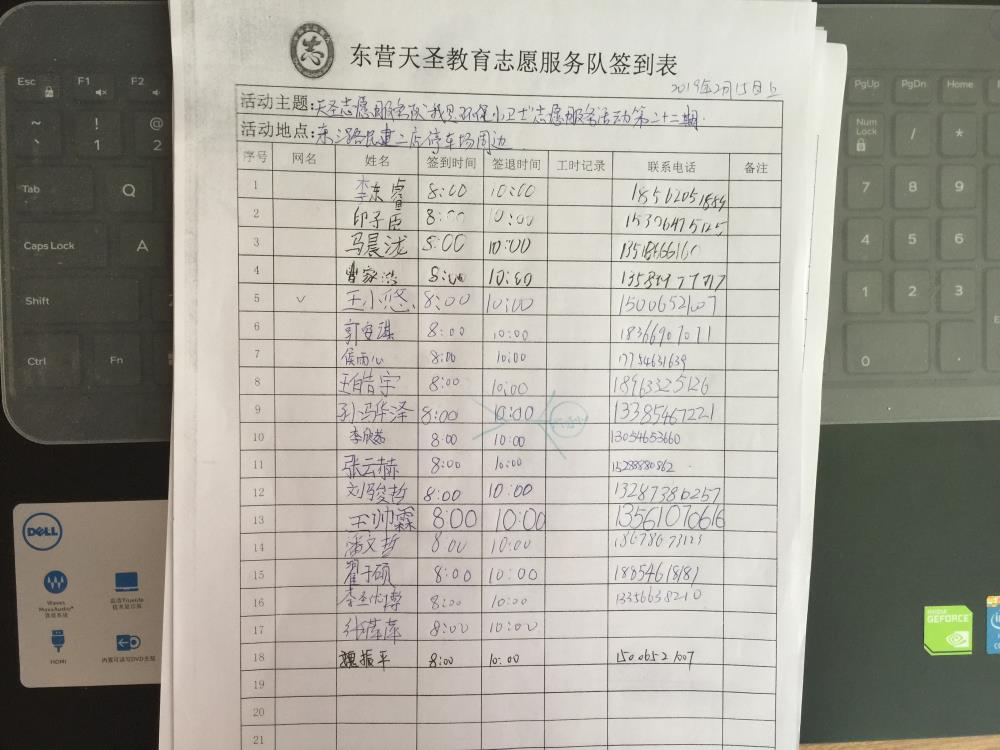 东营天圣教育志愿服务队签到表
2019年2月15日上
活动主题：天圣志愿服务队"我是环保小卫士"志愿服务活动第二十二期.
活动地点：东三路民建二店停车场周边
序号 网名 姓名 签到时间 签退时间 工时记录 联系电话 备注
1 李东睿 8:00 10:00 18562051884
2 印子臣 8:00 10:00
3 马晨泷 8:00 10:00
4 曹家浩 8:00 10:00
5 ✓ 王小悠 8:00 10:00 15006521007
6 郭安琪 8:00 10:00 18366907011
7 侯雨心 8:00 10:00 17754631639
8 王皓宇 8:00 10:00 18963325126
9 孙冯华泽 8:00 10:00 13385467221
10 李欣茹 8:00 10:00 13054653660
11 张云赫 8:00 10:00 15288880862
12 刘骏哲 8:00 10:00 13287386257
13 王帅霖 8:00 10:00 13561070616
14 潘文哲 8:00 10:00 18678673123
15 翟子硕 8:00 10:00 18854618181
16 8:00 10:00 13356638210
17 8:00 10:00
18 魏振平 8:00 10:00 15006521007
19
20
21
Esc F1 F2
~ ! @
` 1 2
Tab Q
Caps Lock A
Shift
Ctrl Fn
PgUp PgDn Home
Num Lock / *
7 8 9
4 5 6
1 2 3
0 .
DELL
Waves MaxxAudio®
HDMI
内置可读写DVD光驱
NVIDIA
GEFORCE